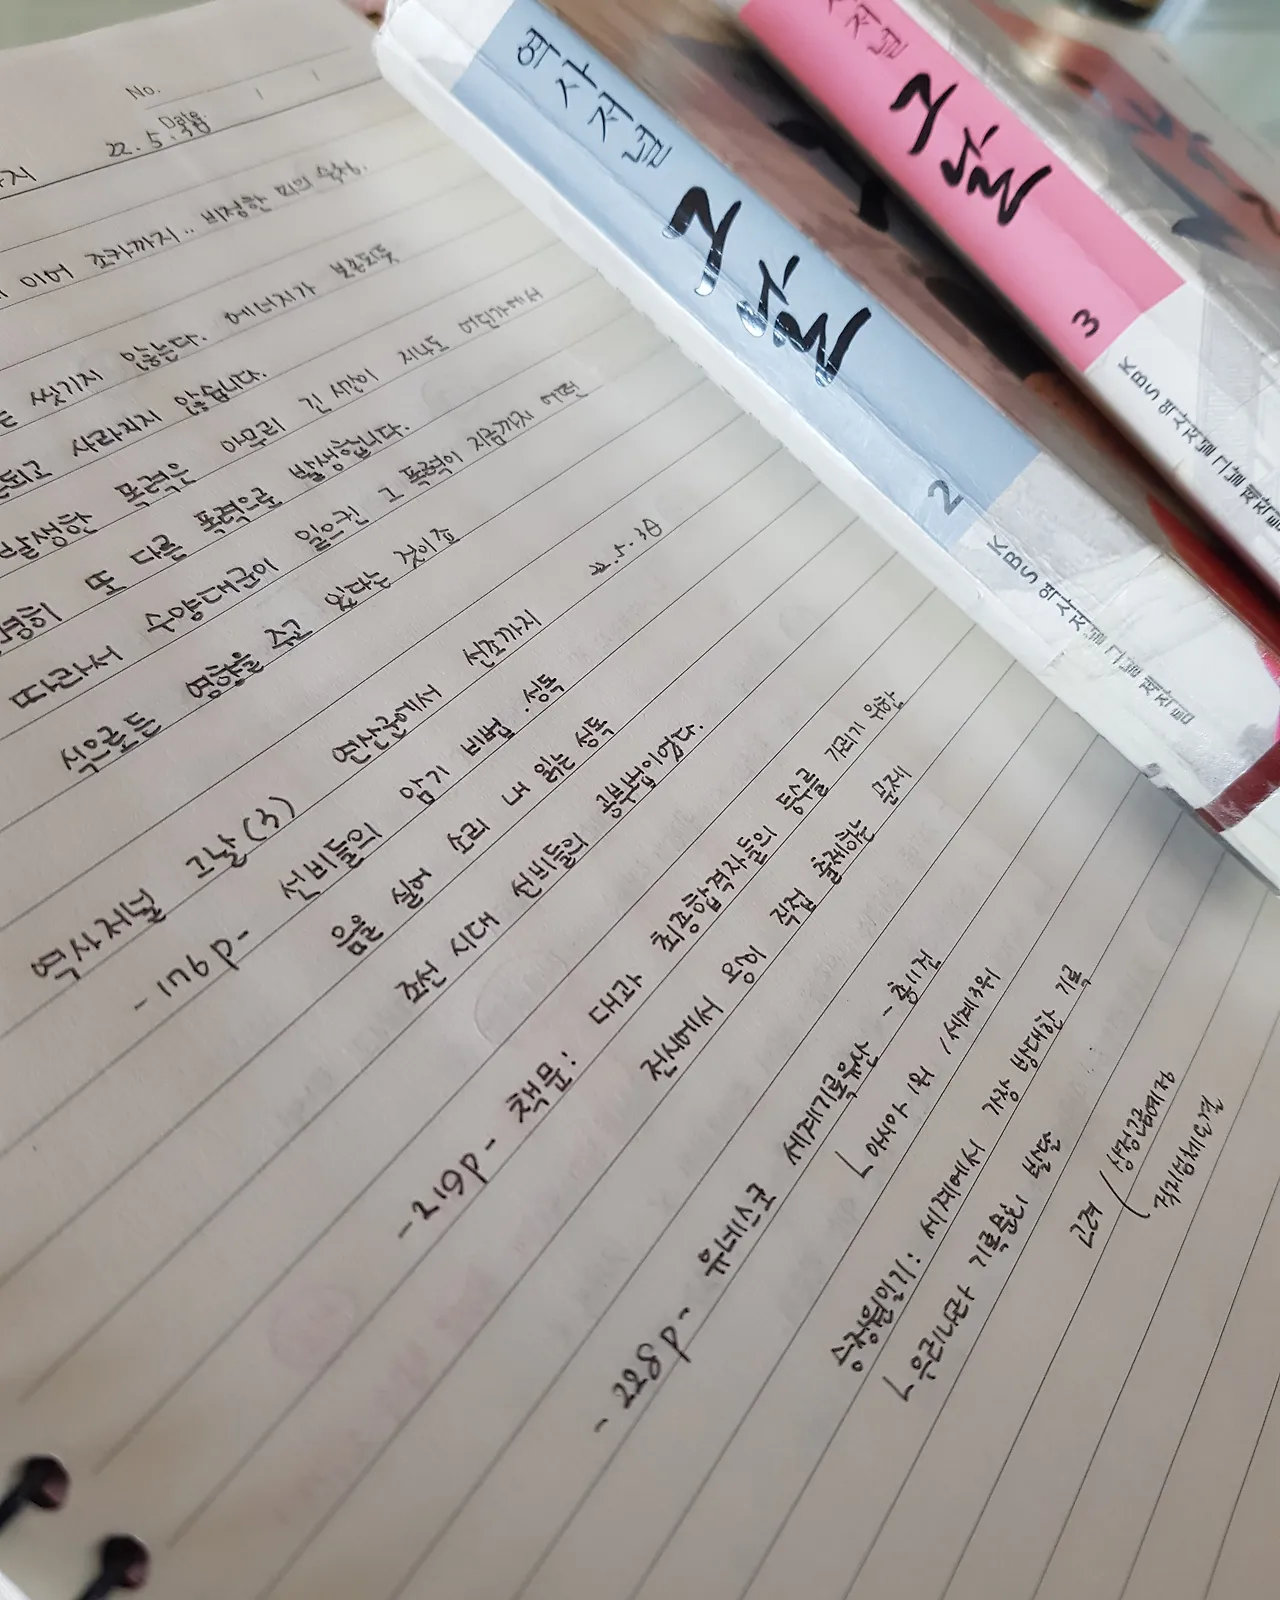 No.
22. 5.
이어 조카까지.. 비정한 피의 숙청.
씻기지 않는다. 에너지가 보존되듯
되고 사라지지 않습니다.
발생한 폭력은 아무리 긴 시간이 지나도 어딘가에서
또 다른 폭력으로 발생합니다.
따라서 수양대군이 일으킨 그 폭력이 지금까지 어떤
식으로든 영향을 주고 있다는 것이죠
22. 5. 30
역사저널 그날 (3) 연산군에서 선조까지
- 176p - 선비들의 암기 비법. 성독
음을 실어 소리 내 읽는 성독
조선 시대 선비들의 공부법이었다.
- 219p - 책문: 대과 최종합격자들의 등수를 가리기 위한
전시에서 왕이 직접 출제하는 문제
- 228p - 유네스코 세계기록유산 - 총11건
ㄴ 아시아 1위 / 세계3위
승정원일기: 세계에서 가장 방대한 기록
ㄴ 우리나라 기록문화 발달
근거 상정고금예문
직지심체요절
역사저널
그날
2
KBS 역사저널 그날 제작팀
저널
그날
3
KBS 역사저널 그날 제작팀